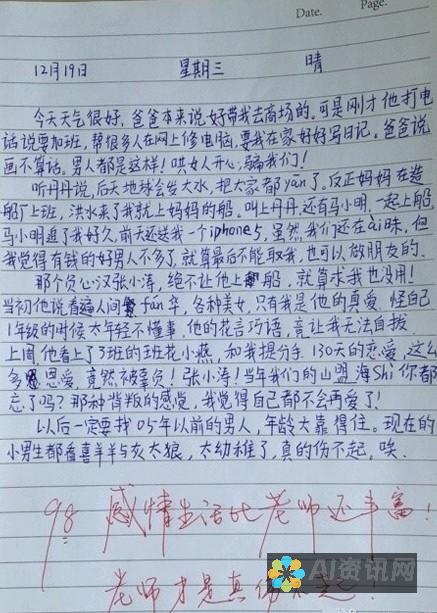 Date.
Page.
12月19日 星期三 晴
今天天气很好，爸爸本来说好带我去商场的。可是刚才他打电
话说要加班，帮很多人在网上修电脑，要我在家好好写日记。爸爸说
画不算话。男人都是这样！哄女人开心，骗我们！
听丹丹说，后天地球会发大水，把大家都yān了。反正妈妈在造
船厂上班，洪水来了我就上妈妈的船。叫上丹丹，还有马小明，一起上船，
马小明追了我好久，前天还送我一个iphone5，虽然我们还在ài昧，但
我觉得有钱的好男人不多了，就算最后不能取我，也可以做朋友的。
那个负心汉张小涛，绝不让他上船，就算求我也没用！
当初他说看遍人间fán华，各种美女，只有我是他的真爱，怪自己
1年级的时候太年轻不懂事，他的花言巧语，竟让我无法自拔
上周他看上了3班的班花小燕，和我提分手，130天的恋爱，这么
多恩爱，竟然被辜负！张小涛！当年我们的山盟海Shi你都
忘了吗？那种背叛的感觉，我觉得自己都不会再爱了！
以后一定要找05年以前的男人，年龄大靠得住。现在的
小男生都看喜羊羊与灰太狼，太幼稚了，真的伤不起，唉。
98 感情生活比老师还丰富！
老师才是真伤不起！
AI资讯网